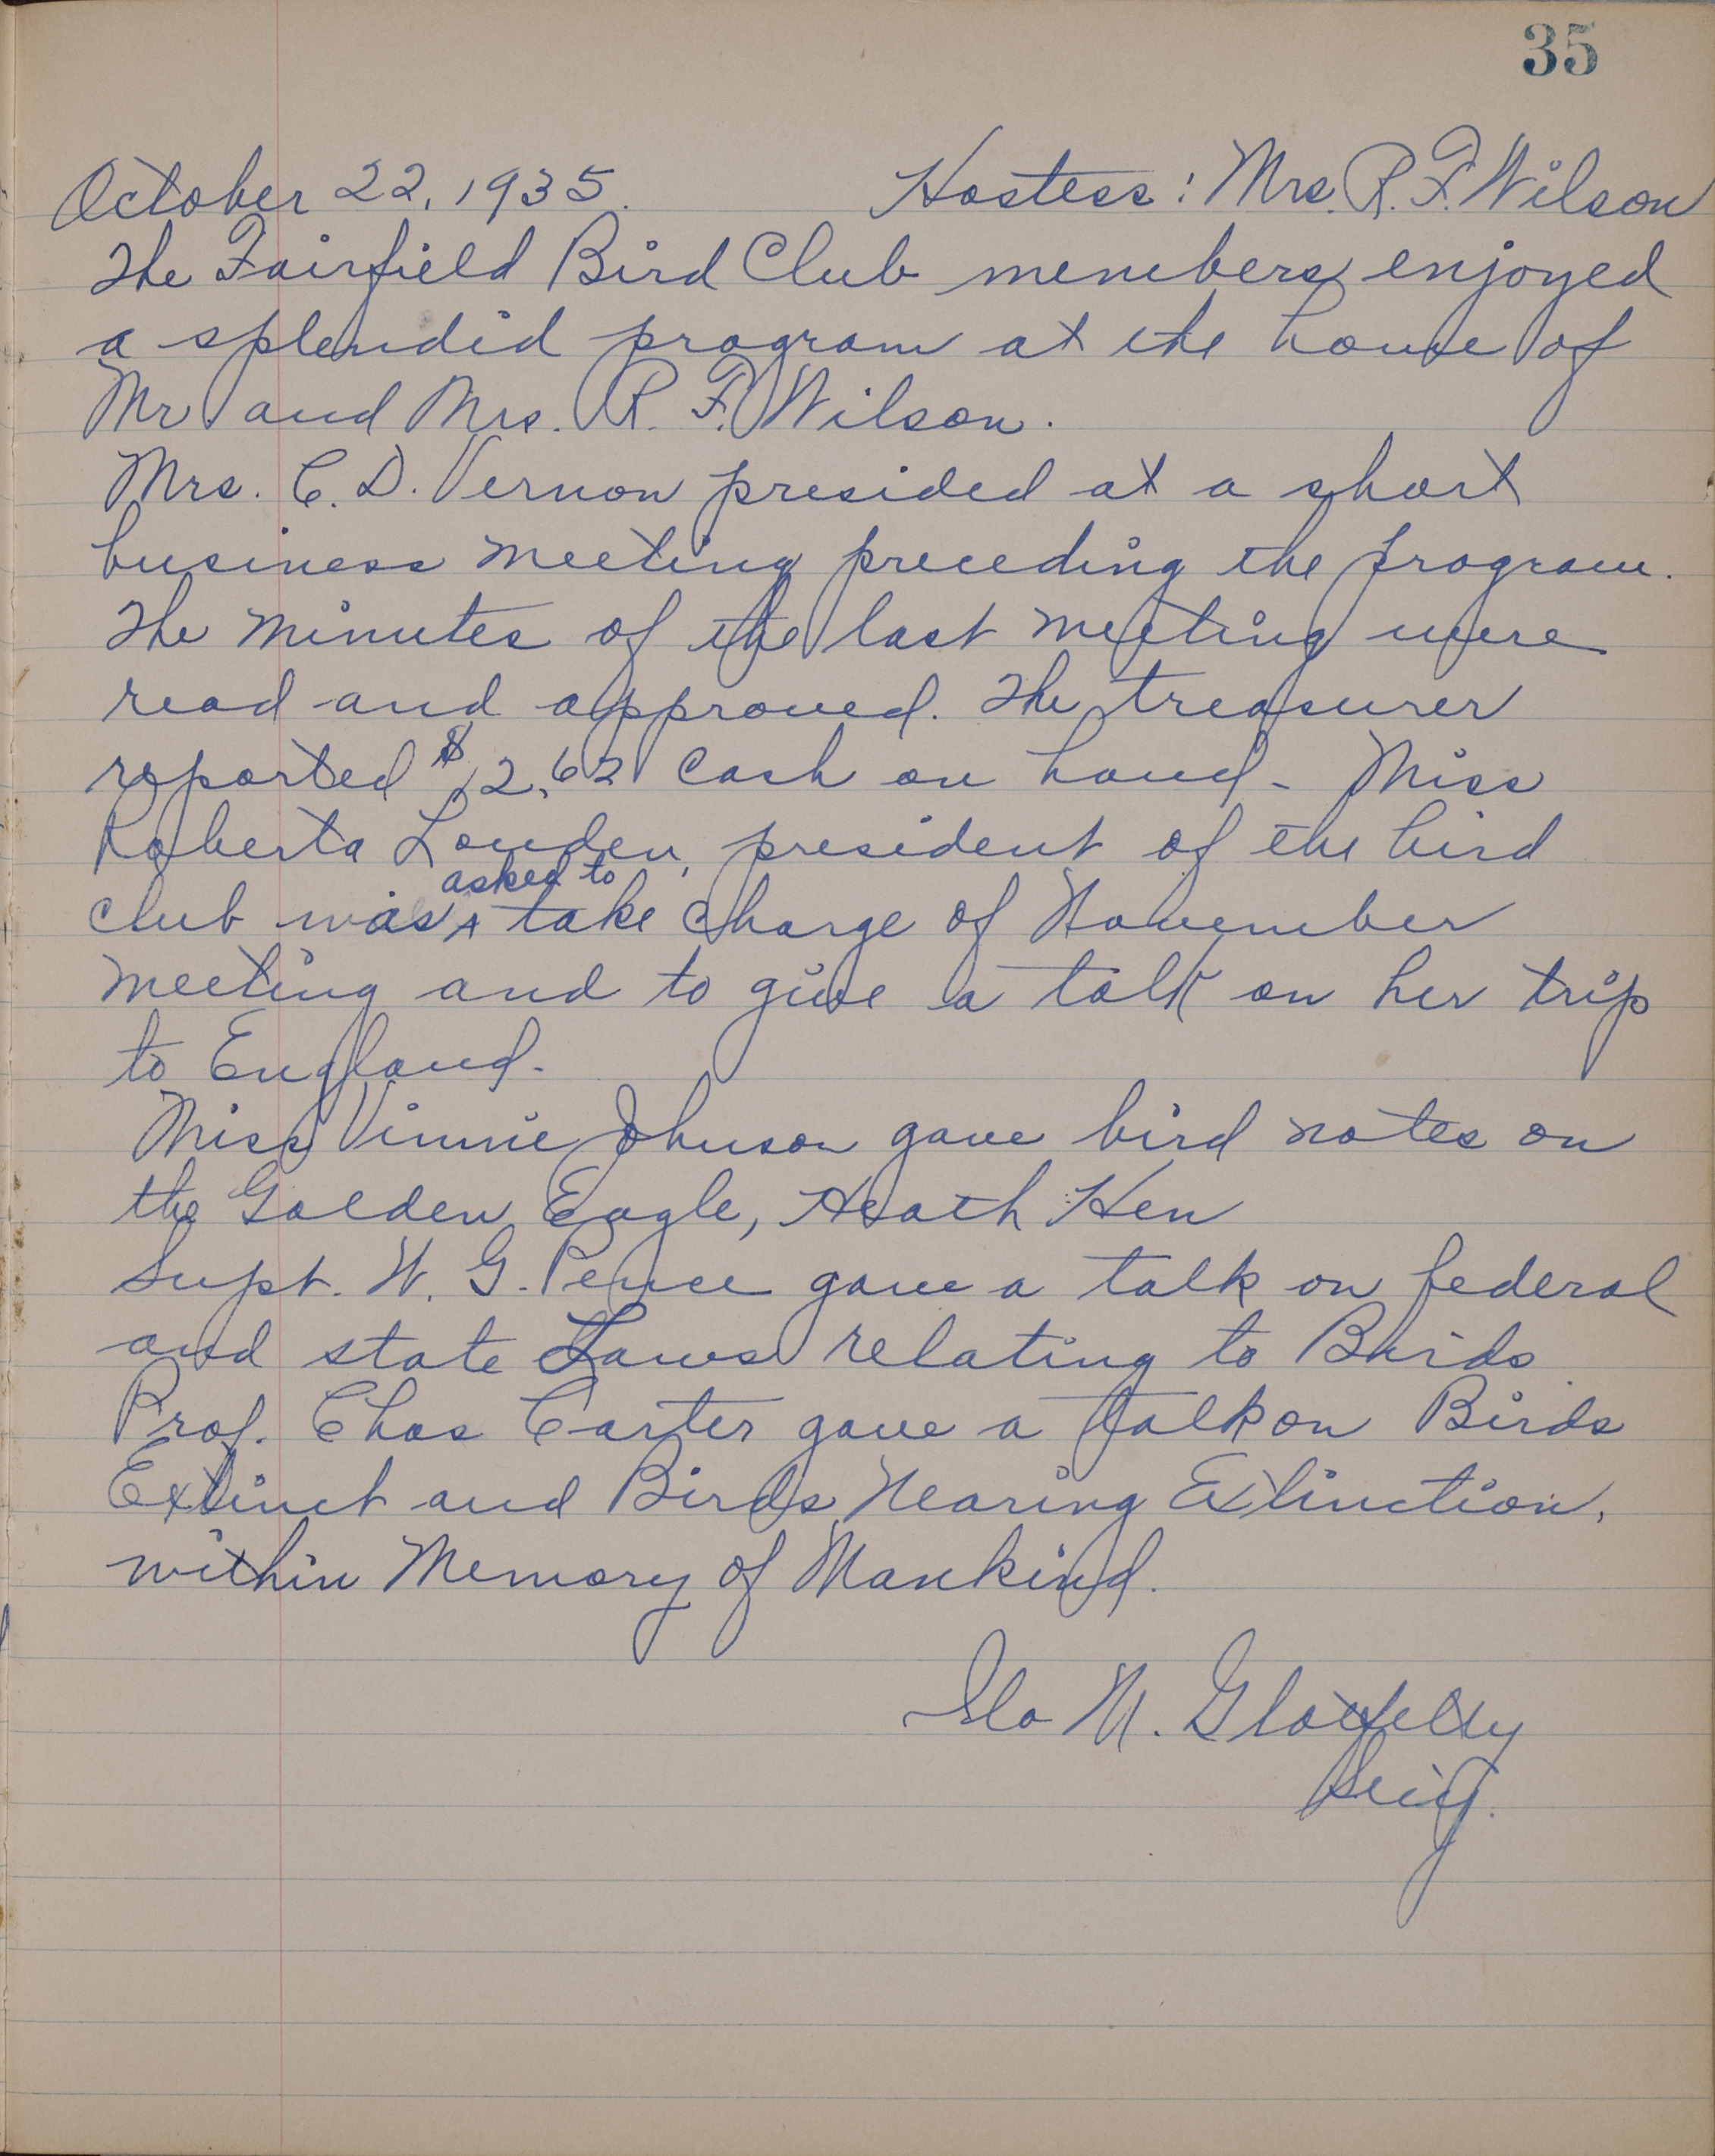 35
October 22, 1935. Hostess: Mrs. R. F. Wilson
The Fairfield Bird Club members enjoyed
a splendid program at the home of
Mr and Mrs. R. F. Wilson.
Mrs. C. D. Vernon presided at a short
business meeting preceding the program.
The minutes of the last meeting were
read and approved. The treasurer
reported $12.62 cash on hand. Miss
Roberta Louden, president of the bird
asked to
club was ^ take charge of November
meeting and to give a talk on her trip
to England.
Miss Vinnie Johnson gave bird notes on
the Golden Eagle, Heath Hen
Supt. W. G. Pence gave a talk on federal
and state Laws relating to Birds.
Prof. Chas Carter gave a talk on Birds
Extinct and Birds Nearing Extinction,
within Memory of Mankind.
M. Glotfelty
Sec'y.